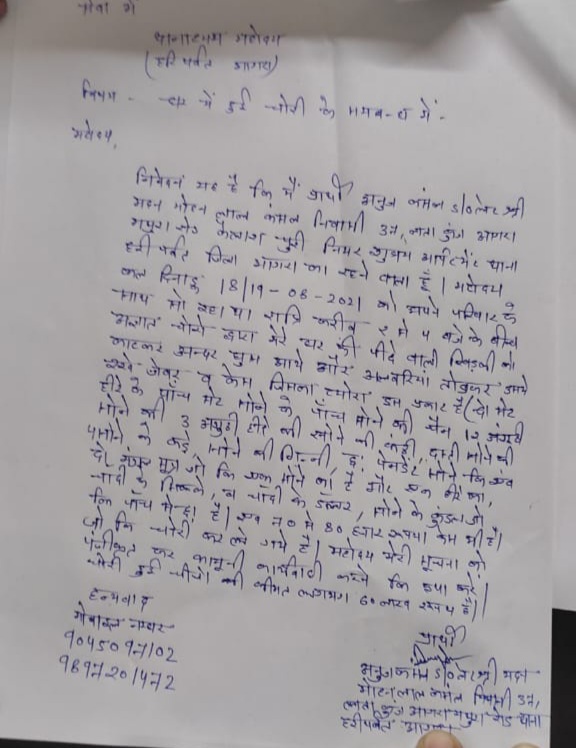 सेवा में
थानाध्यक्ष महोदय
(हरी पर्वत आगरा)
विषय - घर में हुई चोरी के सम्बन्ध में -
महोदय,
निवेदन यह है कि मैं प्रार्थी अनुज कंसल S/O लेट श्री
मदन मोहन लाल कंसल निवासी 37, लता कुंज आगरा
मथुरा रोड कैलाश पुरी नियर शुभम अपार्टमेंट थाना
हरी पर्वत जिला आगरा का रहने वाला हूँ। महोदय
कल दिनांक 18/19-08-2021 को अपने परिवार के
साथ सो रहा था रात्रि करीब 2 से 4 बजे के बीच
अज्ञात चोरों द्वारा मेरे घर की पीछे वाली खिड़की को
काटकर अन्दर घुस आये और अलमारियां तोड़कर उसमे
रखे जेवर व केस जिसका ब्योरा इस प्रकार है (दो सेट
हीरे के पाँच सेट सोने के पाँच सोने की चैन 12 अंगूठी
सोने की 3 अंगूठी हीरे की सोने की
4 सोने के कड़े सोने की गिन्नी, पेन्डेंट सोने कि एवं
दो मंगल सूत्र जो कि एक सोने का है और एक का,
चाँदी के सिक्के, व चाँदी के सोने के कुंडल जो
कि पाँच सेट है। एवं 70 से 80 हजार रूपया केस भी है।
जो कि चोरी कर ले गये है। महोदय मेरी सूचना को
पंजीकृत कर कानूनी कार्यवाही करने कि कृपा करें।
चोरी हुई चीजों की कीमत लगभग 60 लाख रूपये है।
धन्यवाद
मोबाइल नम्बर
9045097102
9897201472
प्रार्थी
अनुज कंसल S/O लेट श्री मदन
मोहन लाल कंसल निवासी 37,
लता कुंज आगरा मथुरा रोड थाना
हरी पर्वत आगरा